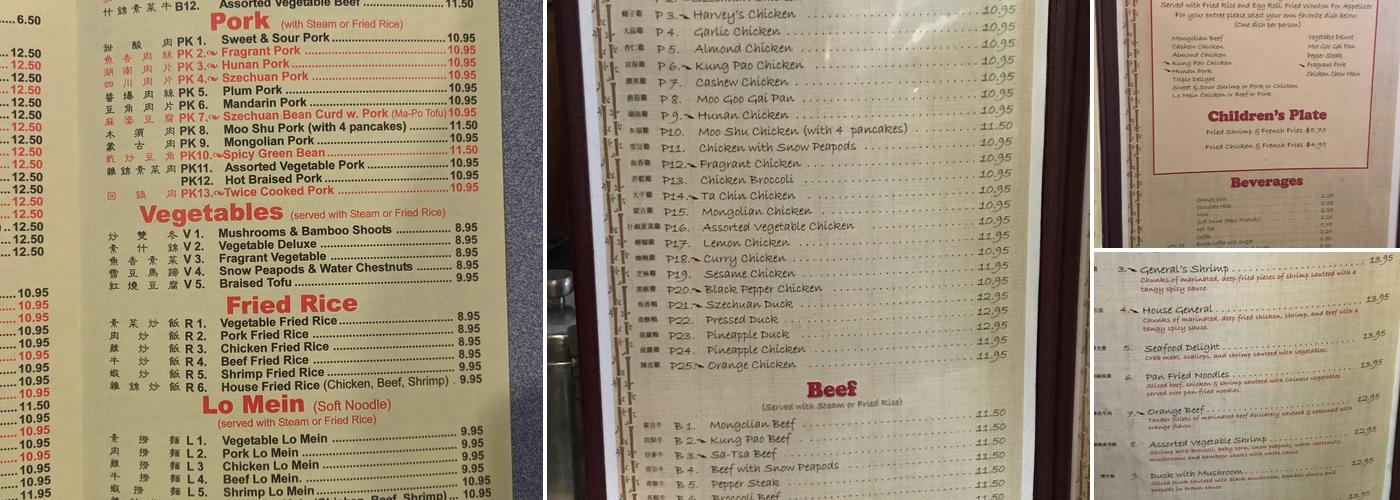 6.50
12.50
12.50
12.50
12.50
12.50
12.50
12.50
12.50
12.50
12.50
12.50
12.50
10.95
10.95
10.95
10.95
10.95
10.95
10.95
10.95
10.95
11.50
10.95
10.95
10.95
10.95
10.95
11.95
什錦素菜牛 B12. Assorted Vegetable Beef 11.50
Pork (with Steam or Fried Rice)
甜酸肉 PK 1. Sweet & Sour Pork 10.95
魚香肉絲 PK 2. Fragrant Pork 10.95
湖南肉片 PK 3. Hunan Pork 10.95
四川肉片 PK 4. Szechuan Pork 10.95
醬爆肉絲 PK 5. Plum Pork 10.95
豆角肉片 PK 6. Mandarin Pork 10.95
麻婆豆腐 PK 7. Szechuan Bean Curd w. Pork (Ma-Po Tofu) 10.95
木須肉 PK 8. Moo Shu Pork (with 4 pancakes) 11.50
蒙古肉 PK 9. Mongolian Pork 10.95
乾炒豆角 PK10. Spicy Green Bean 11.50
雜錦素菜肉 PK11. Assorted Vegetable Pork 10.95
PK12. Hot Braised Pork 10.95
回鍋肉 PK13. Twice Cooked Pork 10.95
Vegetables (served with Steam or Fried Rice)
炒雙冬 V 1. Mushrooms & Bamboo Shoots 8.95
素什錦 V 2. Vegetable Deluxe 8.95
魚香素菜 V 3. Fragrant Vegetable 8.95
雪豆馬蹄 V 4. Snow Peapods & Water Chestnuts 8.95
紅燒豆腐 V 5. Braised Tofu 9.95
Fried Rice
素菜炒飯 R 1. Vegetable Fried Rice 8.95
肉炒飯 R 2. Pork Fried Rice 8.95
雞炒飯 R 3. Chicken Fried Rice 8.95
牛炒飯 R 4. Beef Fried Rice 8.95
蝦炒飯 R 5. Shrimp Fried Rice 9.95
雜錦炒飯 R 6. House Fried Rice (Chicken, Beef, Shrimp) 9.95
Lo Mein (Soft Noodle)
(served with Steam or Fried Rice)
素撈麵 L 1. Vegetable Lo Mein 9.95
肉撈麵 L 2. Pork Lo Mein 9.95
雞撈麵 L 3 Chicken Lo Mein 9.95
牛撈麵 L 4. Beef Lo Mein. 9.95
蝦撈麵 L 5. Shrimp Lo Mein 9.95
10.95
P 3. Harvey's Chicken 10.95
P 4. Garlic Chicken 10.95
P 5. Almond Chicken 10.95
P 6. Kung Pao Chicken 10.95
P 7. Cashew Chicken 10.95
P 8. Moo Goo Gai Pan 10.95
P 9. Hunan Chicken 10.95
P10. Moo Shu Chicken (with 4 pancakes) 11.50
P11. Chicken with Snow Peapods 10.95
P12. Fragrant Chicken 10.95
P13. Chicken Broccoli 10.95
P14. Ta Chin Chicken 10.95
P15. Mongolian Chicken 10.95
P16. Assorted Vegetable Chicken 10.95
P17. Lemon Chicken 11.95
P18. Curry Chicken 10.95
P19. Sesame Chicken 11.95
P20. Black Pepper Chicken 10.95
P21. Szechuan Duck 12.95
P22. Pressed Duck 12.95
P23. Pineapple Duck 12.95
P24. Pineapple Chicken 11.95
P25. Orange Chicken 11.95
Beef
(Served with Steam or Fried Rice)
B 1. Mongolian Beef 11.50
B 2. Kung Pao Beef 11.50
B 3. Sa-Tsa Beef 11.50
B 4. Beef with Snow Peapods 11.50
B 5. Pepper Steak 11.50
B 6. Broccoli Beef 11.50
Served with Fried Rice and Egg Roll, Fried Wonton For Appetizer
For your entree please select your own favorite dish below.
(One dish per person)
Mongolian Beef Vegetable Deluxe
Cashew Chicken Moo Goo Gai Pan
Almond Chicken Pepper Steak
Kung Pao Chicken Fragrant Pork
Hunan Pork Chicken Chow Mein
Triple Delight
Sweet & Sour Shrimp or Pork or Chicken
Lo Mein Chicken or Beef or Pork
Children's Plate
Fried Shrimp & French Fries $5.75
Fried Chicken & French Fries $4.95
Beverages
Orange Juice
Chocolate Milk
Milk
Hot Tea
Coffee
3. General's Shrimp 13.95
Chunks of marinated, deep fried pieces of shrimp sauteed with a
tangy spicy sauce.
4. House General 13.95
Chunks of marinated, deep fried chicken, shrimp, and beef with a
tangy spicy sauce.
5. Seafood Delight 13.95
Crab meat, scallops, and shrimp sauteed with vegetables.
6. Pan Fried Noodles 13.95
Sliced beef, chicken & shrimp sauteed with Chinese vegetables
served over pan-fried noodles.
7. Orange Beef 12.95
Tender fillets of marinated beef delicately sauteed & seasoned with
orange flavor.
8. Assorted Vegetable Shrimp 12.95
Shrimp with broccoli, baby corn, snow peapods, water chestnuts,
mushrooms and bamboo shoots with white sauce.
9. Duck with Mushroom
Sliced duck sauteed with black mushroom, bamboo shoots and
peapods in brown sauce.
13.95